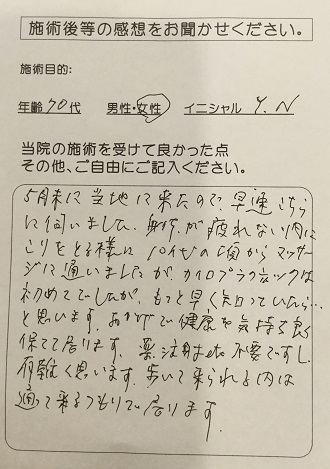 施術後等の感想をお聞かせください。
施術目的:
年齢70代 男性・女性 イニシャル Y.N
当院の施術を受けて良かった点
その他、ご自由にご記入ください。
5月末に当地に来たので、早速こちら
に伺いました。身体が疲れない内に
こりをとる様に 10代の頃からマッサー
ジに通いましたが、カイロプラクティックは
初めてでしたが、もっと早く知っていたら…
と思います。おかげで健康を気持ち良く
保てて居ります。薬、注射も不要ですし、
有難く思います。歩いて来られる内は
通って来るつもりで居ります。